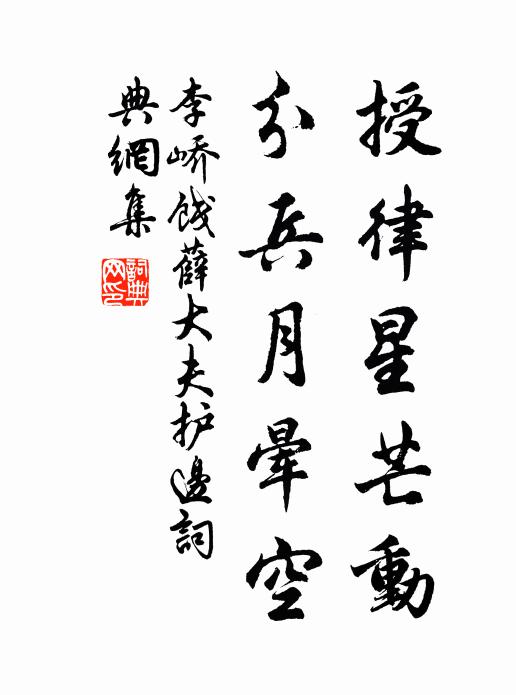 授律星芒動
分兵月暈空
李嶠餞薛大夫护邊詞
典網集
詞典
网印